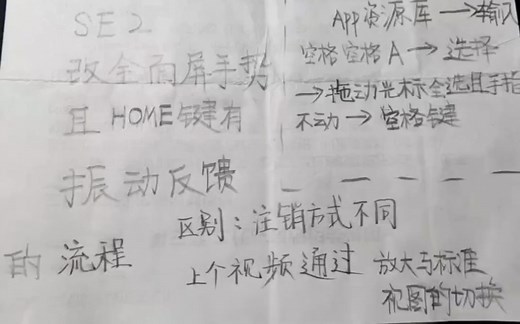 SE2
改全面屏手势
且 HOME键有
振动反馈
的 流程
App资源库→输入
空格空格A→选择
→拖动光标全选且手指
不动→空格键
区别：注销方式不同
上个视频通过 放大与标准
视图的切换